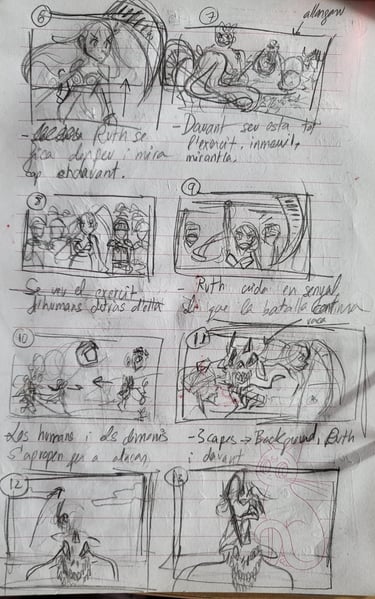 6
7
allargar
- Ruth se
fica dempeu i mira
cap endavant.
- Davant seu està tot
l'exèrcit, inmovil,
mirantla.
8
9
Se veu el exercit
d'humans detras d'ella
- Ruth crida en senyal
de que la batalla continua
10
11
vaca
Los humans i els dimonis
s'apropen per a atacar
- 3 capes → Background, Ruth
i davant
12
13